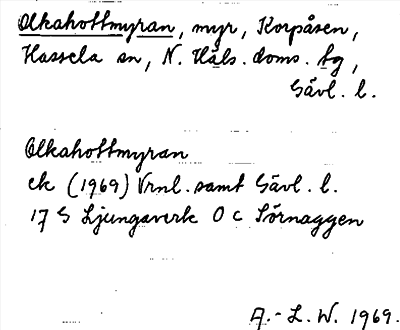 Alkahottmyran, myr, Korpåsen,
Hassela sn, N. Häls. doms. tg,
Gävl. l.
Alkahottmyran
ek (1969) Vrnl. samt Gävl. l.
17 G Ljungaverk 0 c Sörnaggen
A.-L. W. 1969.